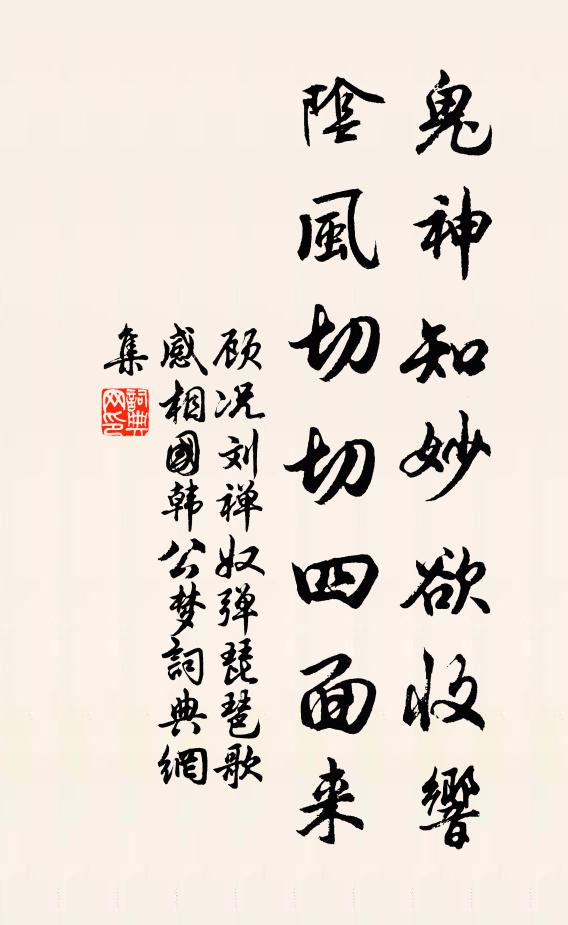 鬼神知妙欲收響
陰風切切四面来
顾况刘禅奴弹琵琶歌
感相國韩公梦詞典網
集
詞典網印